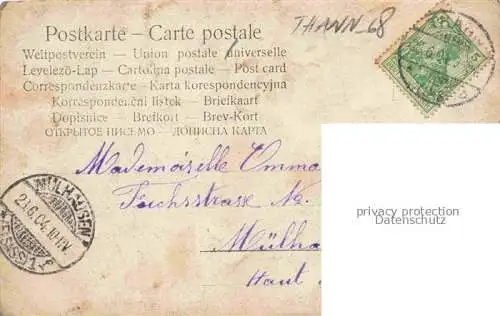 Postkarte – Carte postale
THANN 68
Weltpostverein – Union postale universelle
Levelező-Lap – Cartolina postale – Post card
Correspondenzkarte – Karta korespondencyjna
Korrespondenční lístek – Briefkaart
Dopisnice – Brefkort – Brev-Kort
ОТКРЫТОЕ ПИСЬМО – ДОПИСНА КАРТА
Mademoiselle Emma
Fuchsstrasse No.
Mülha
Haut
MÜLHAUSEN
privacy protection
Datenschutz